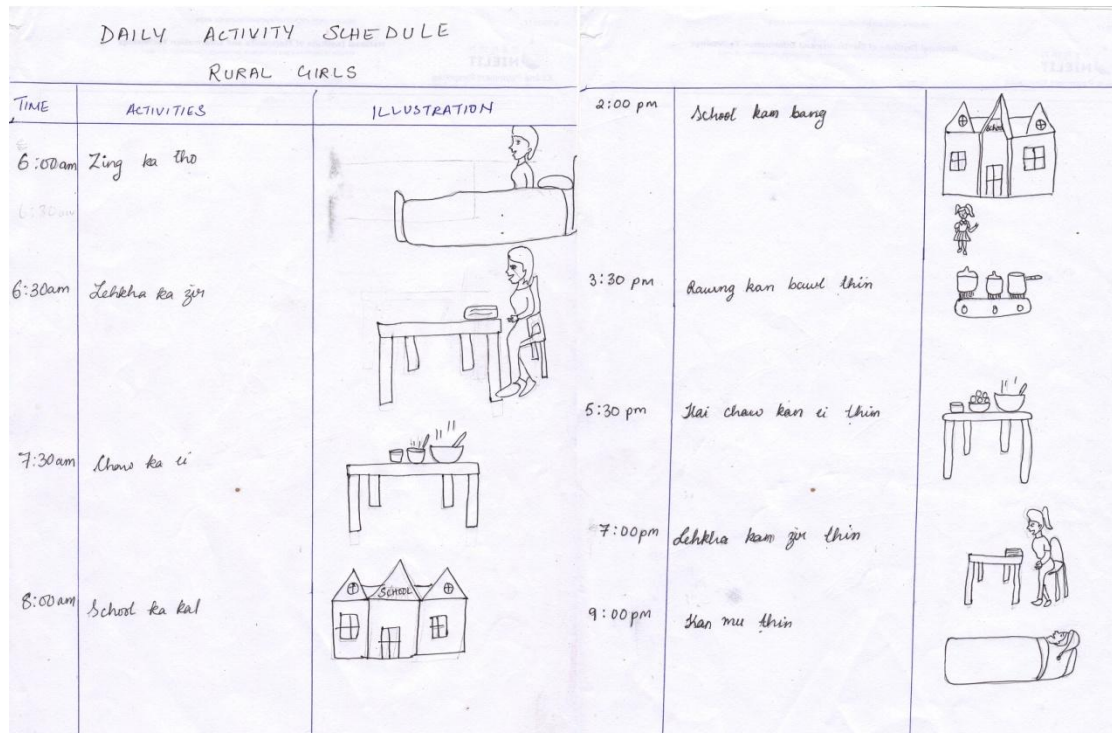 DAILY ACTIVITY SCHEDULE
RURAL GIRLS
TIME ACTIVITIES ILLUSTRATION
6:00am Zing ka tho
6:30am
6:30am Lehkha ka zir
7:30am Chaw ka ei
8:00am School ka kal
SCHOOL
2:00 pm School kam bang
School
3:30 pm Rawng kan bawl thin
5:30 pm chaw kan ei thin
7:00pm Lehkha kam zir thin
9:00pm Kan mu thin
NIELIT